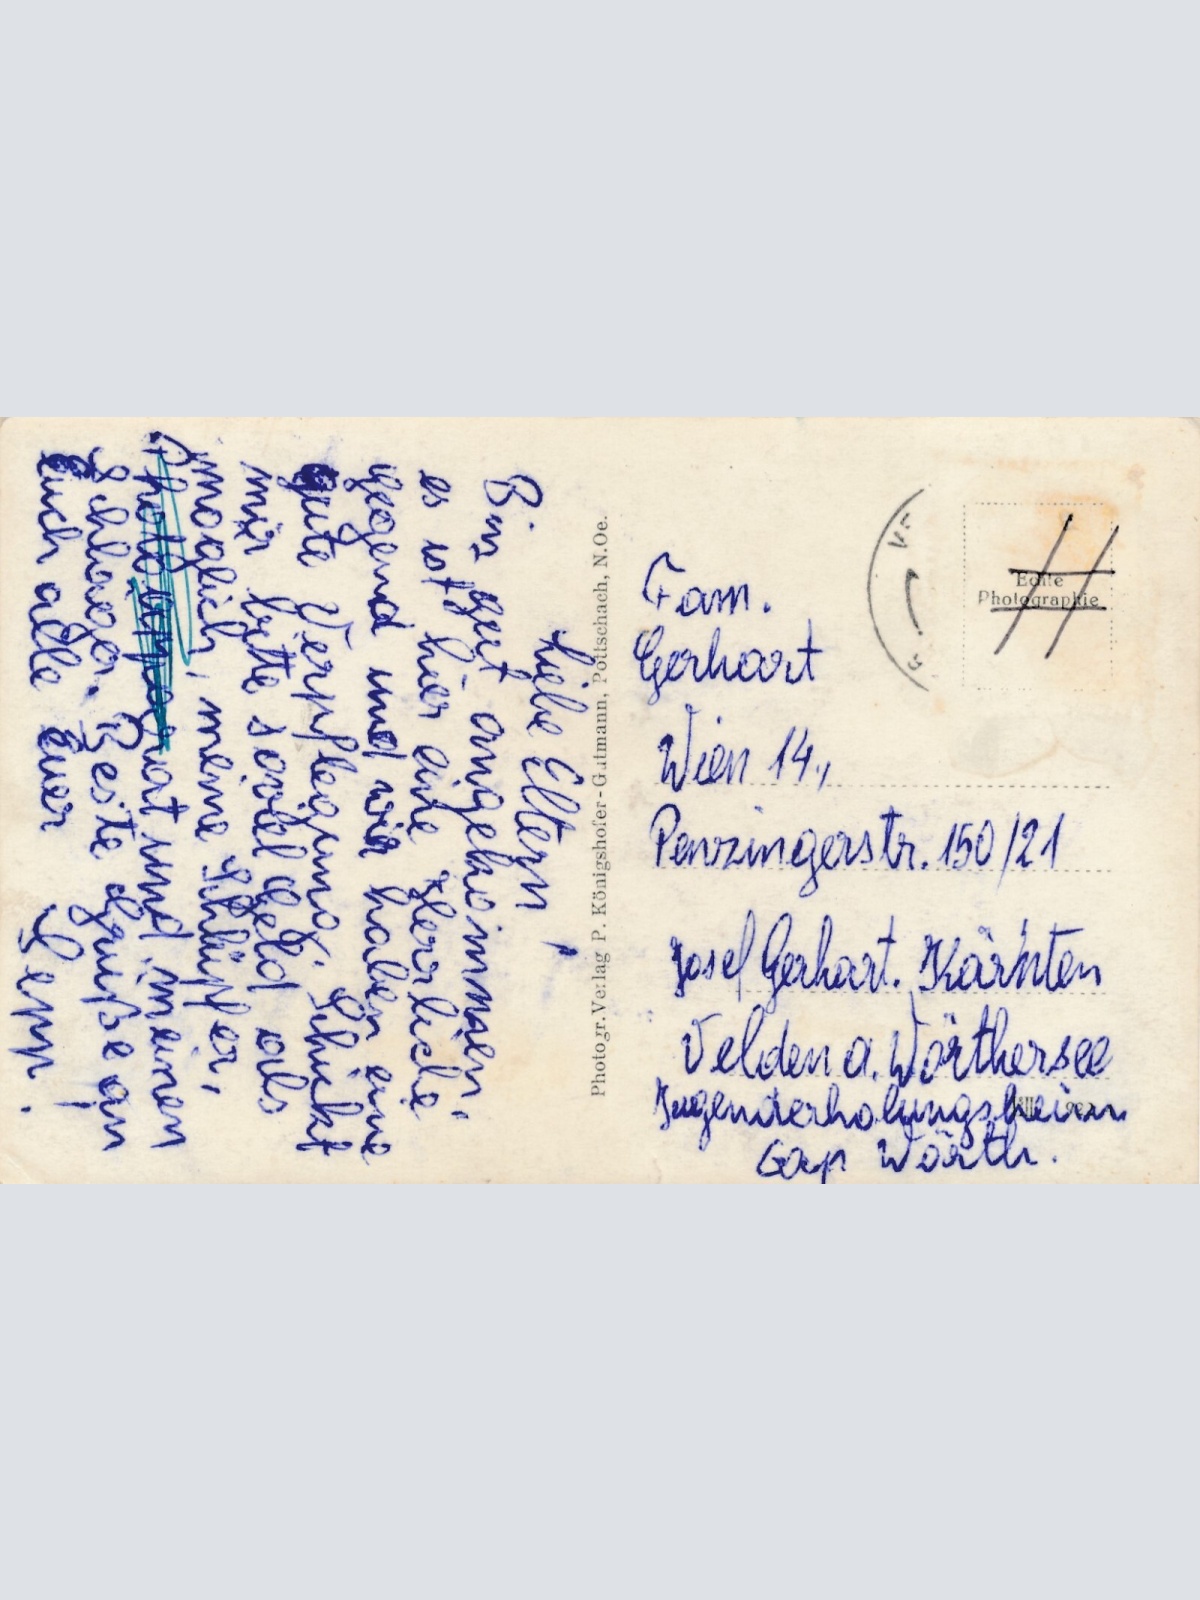 Liebe Eltern,
Bin gut angekommen,
es ist hier eine herrliche
gegend und wir haben eine
gute Verpflegung. Schickt
mir bitte soviel Geld als
möglich, meine Schlüpfer,
Photoapparat und meinen
Schläger. Beste Grüße an
Euch alle Euer
Sepp.
Photogr.Verlag P. Königshofer-Gutmann, Pottschach, N.Oe.
Echte
Photographie
Fam.
Gerhart
Wien 14.,
Penzingerstr. 150/21
Josef Gerhart. Kärnten
Velden a. Wörthersee
Jugenderholungsheim
Cap Wörth.